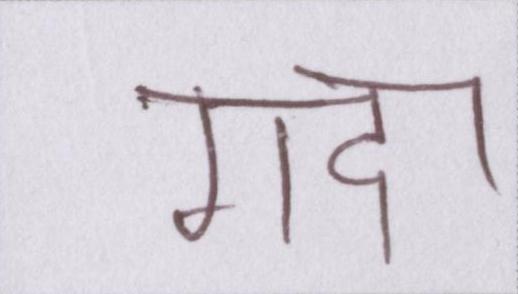 गदा